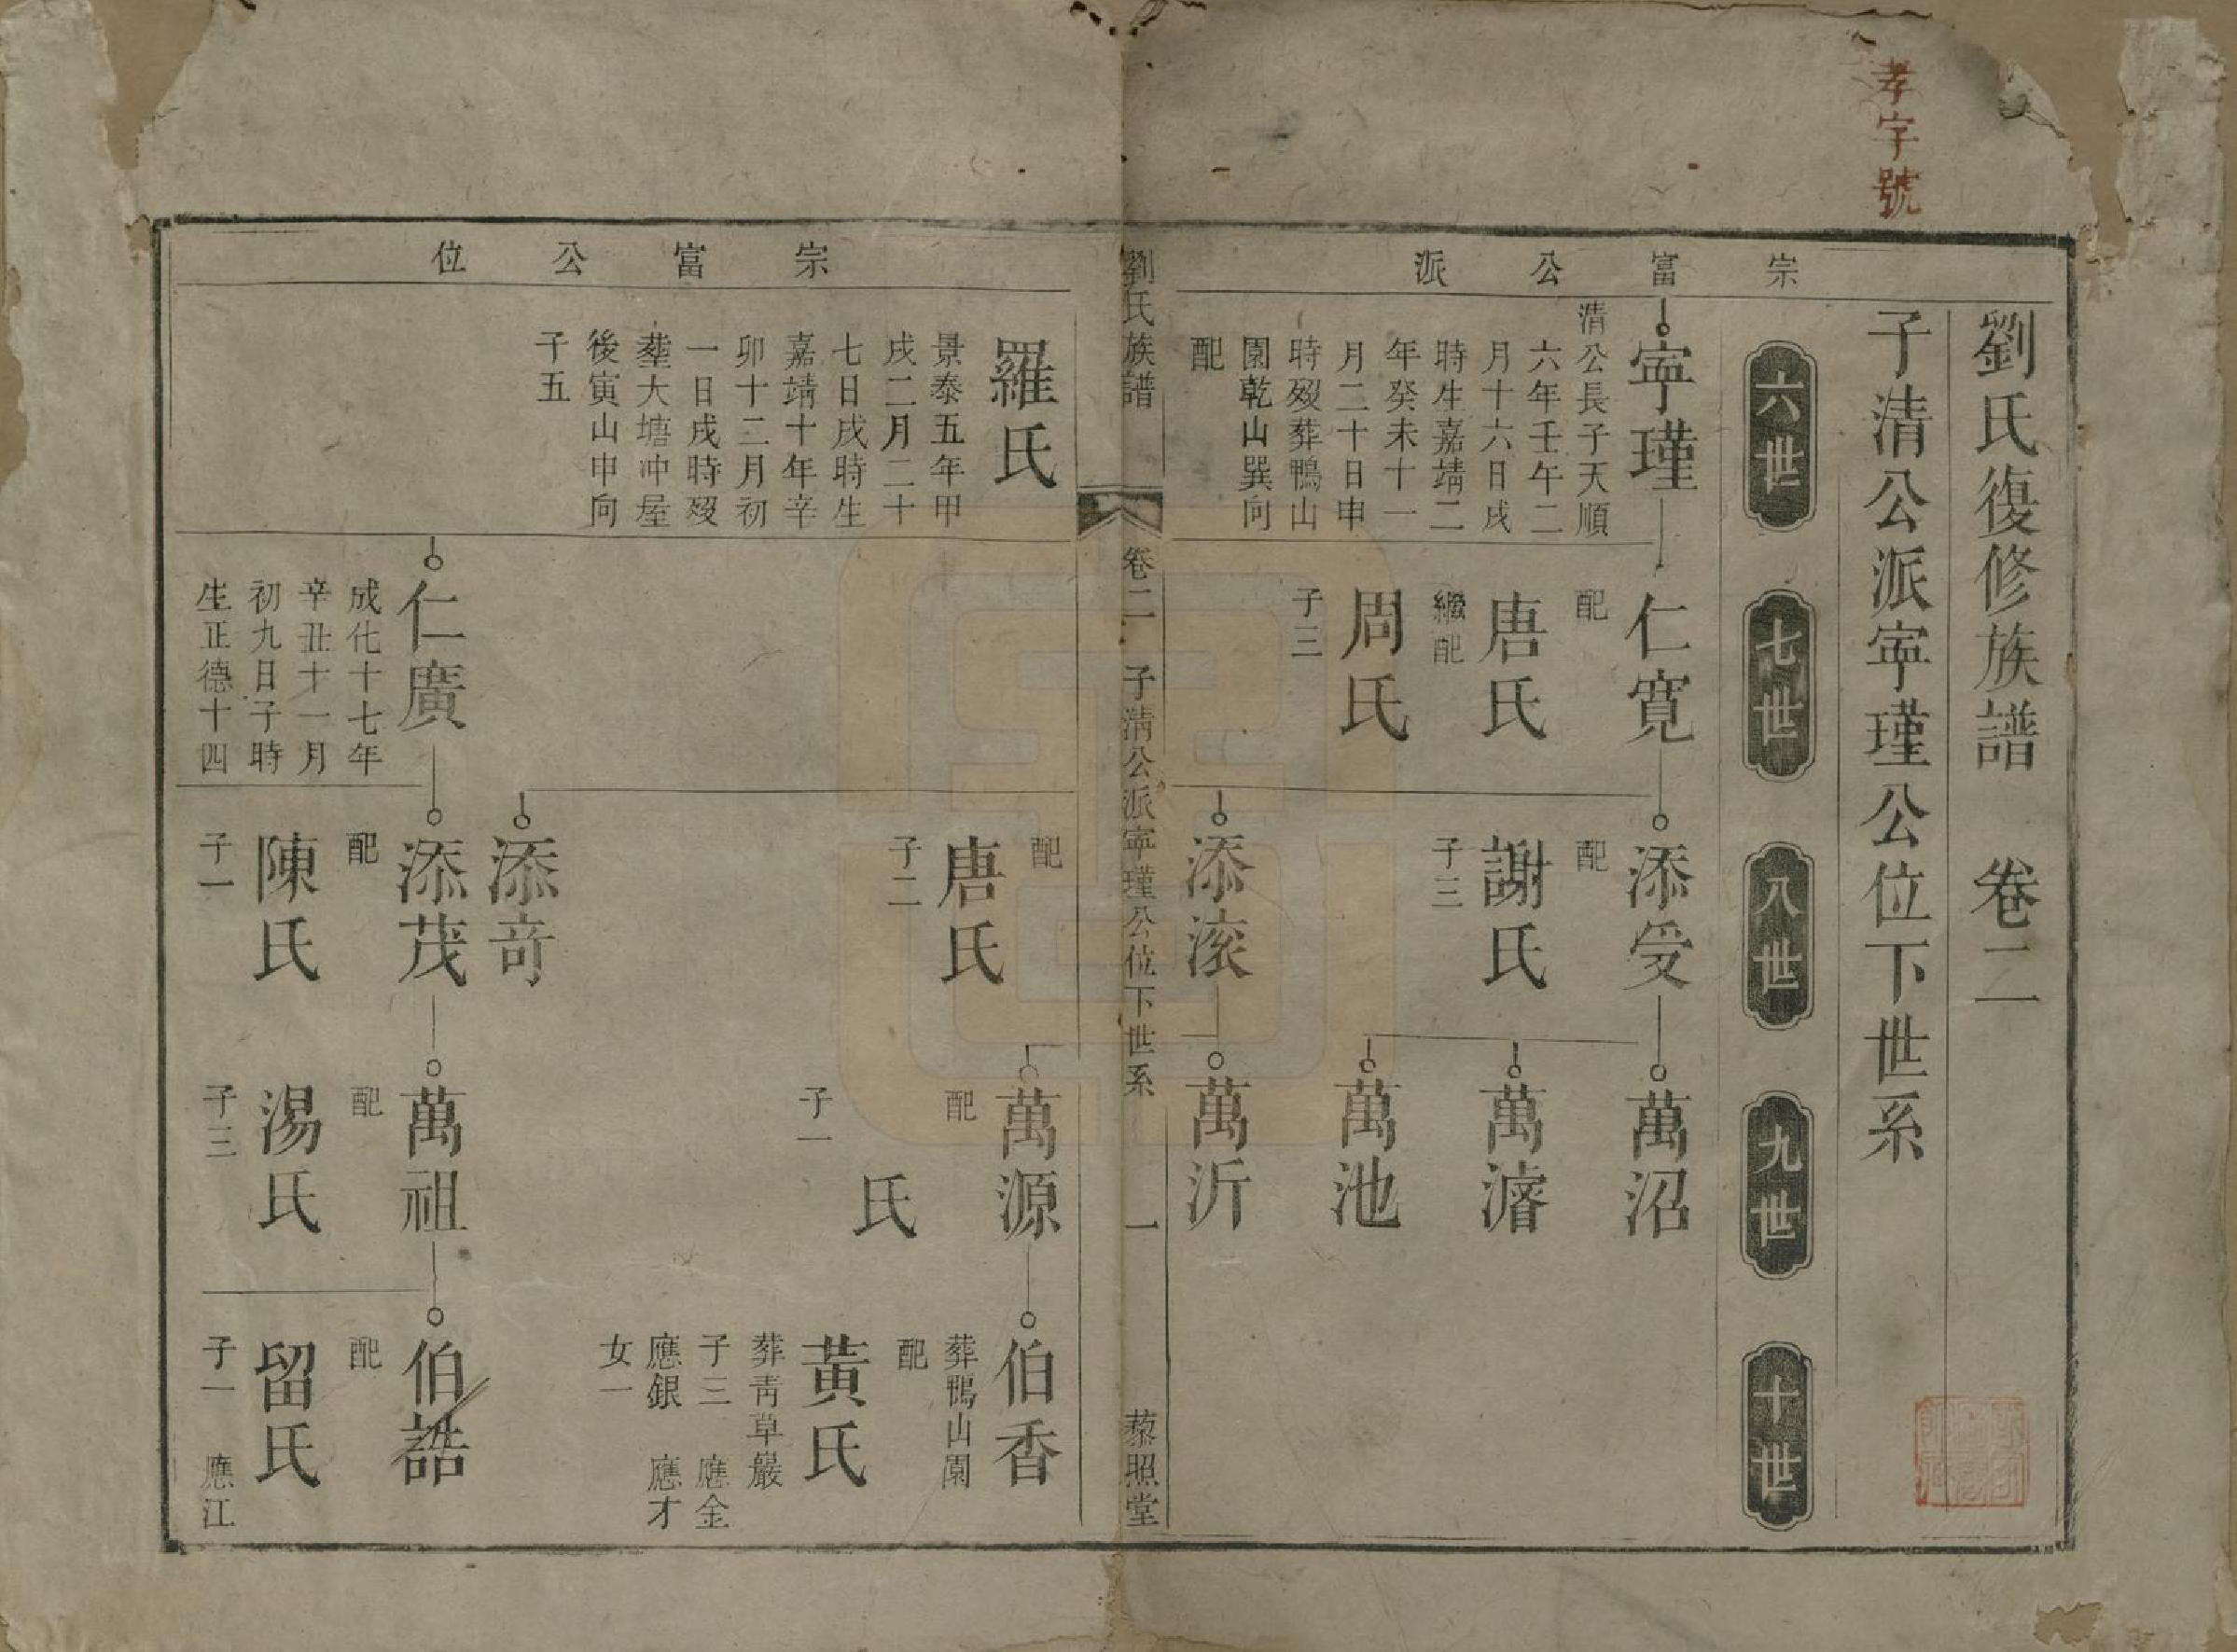 孝字號
劉氏復修族譜　卷二
子清公派寧瑾公位下世系
六世
七世
八世
九世
十世
宗富公派
寧瑾
清公長子天順
六年壬午二
月十六日戌
時生嘉靖二
年癸未十一
月二十日申
時歿葬鴨山
園乾山巽向
配
仁寬
配
唐氏
繼配
周氏
子三
添受
配
謝氏
子三
添滚
萬沼
萬濬
萬池
萬沂
劉氏族譜
卷二
子清公派寧瑾公位下世系
一
藜照堂
宗富公位
羅氏
景泰五年甲
戌二月二十
七日戌時生
嘉靖十年辛
卯十二月初
一日戌時歿
塟大塘冲屋
後寅山申向
子五
仁廣
成化十七年
辛丑十一月
初九日子時
生正德十四
配
唐氏
子二
添奇
添茂
配
陳氏
子一
萬源
配
氏
子一
萬祖
配
湯氏
子三
伯香
葬鴨山園
配
黃氏
葬靑草嚴
子三　應金
應銀　應才
女一
伯誥
配
留氏
子一　應江